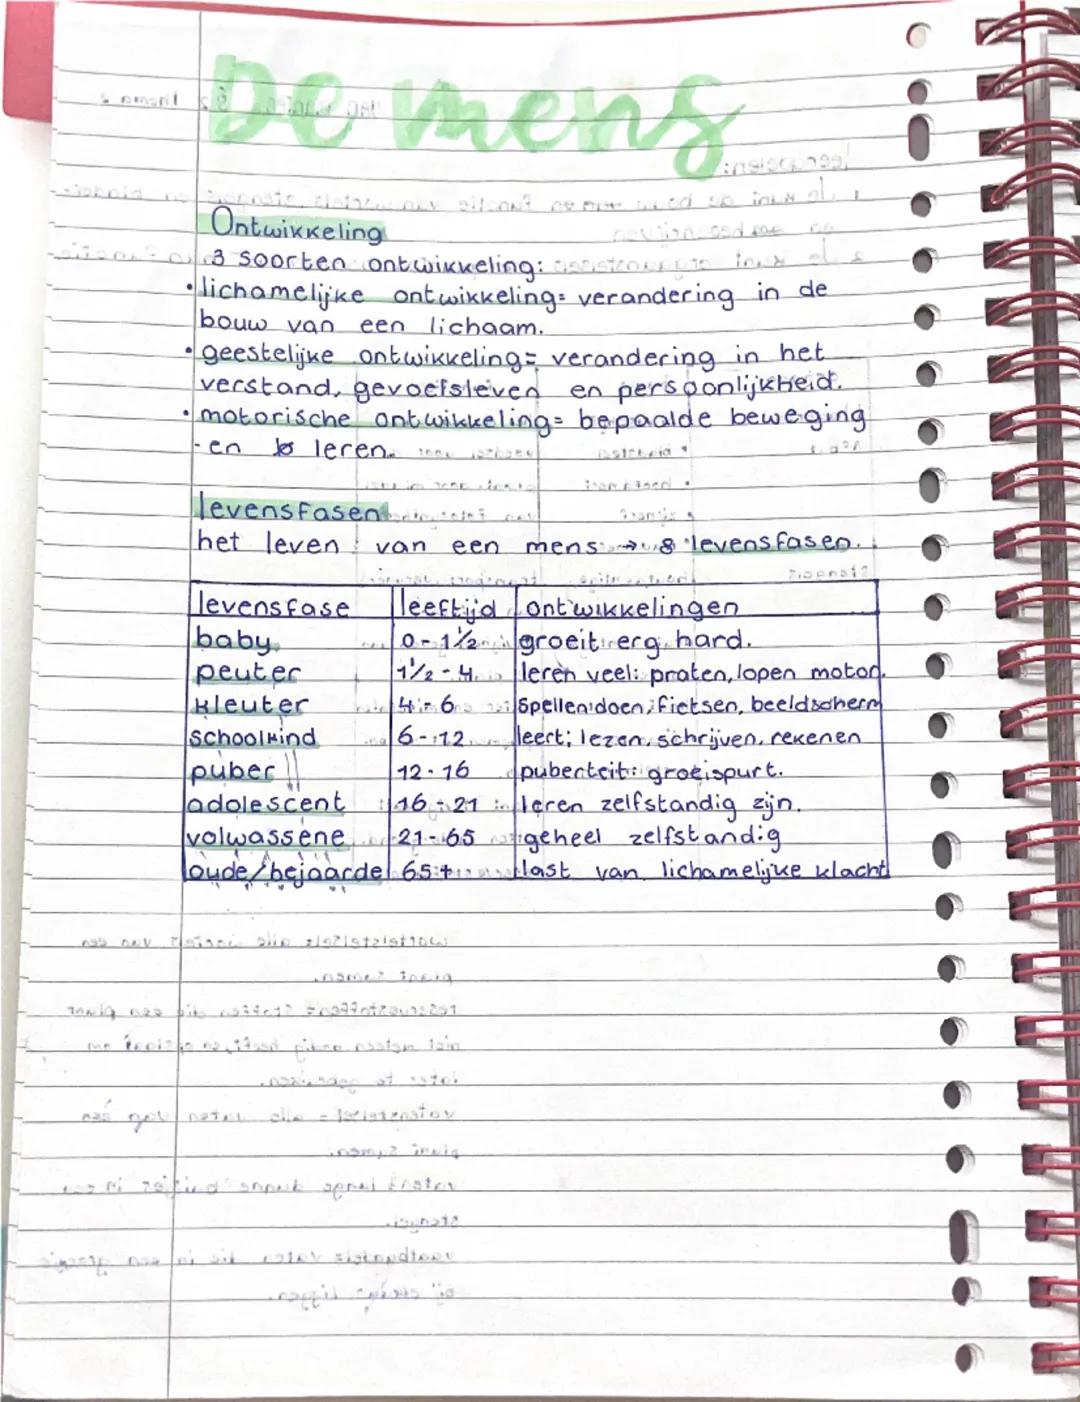 De mens
Ontwikkeling
3 soorten ontwikkeling:
• lichamelijke ontwikkeling= verandering in de
bouw van een lichaam.
• geestelijke ontwikkeling= verandering in het
verstand, gevoelsleven en persoonlijkheid.
• motorische ontwikkeling= bepaalde beweging
-en leren.
levensfasen
het leven van een mens → 8 levensfasen.
levensfase leeftijd ontwikkelingen
baby 0-1½ groeit erg hard.
peuter 1½-4 leren veel: praten, lopen motor.
kleuter 4-6 Spellen doen, fietsen, beeldscherm
schoolkind 6-12 leert; lezen, schrijven, rekenen
puber 12-16 puberteit: groeispurt.
adolescent 16-21 leren zelfstandig zijn.
volwassene 21-65 geheel zelfstandig
oude/bejaarde 65+ last van lichamelijke klacht